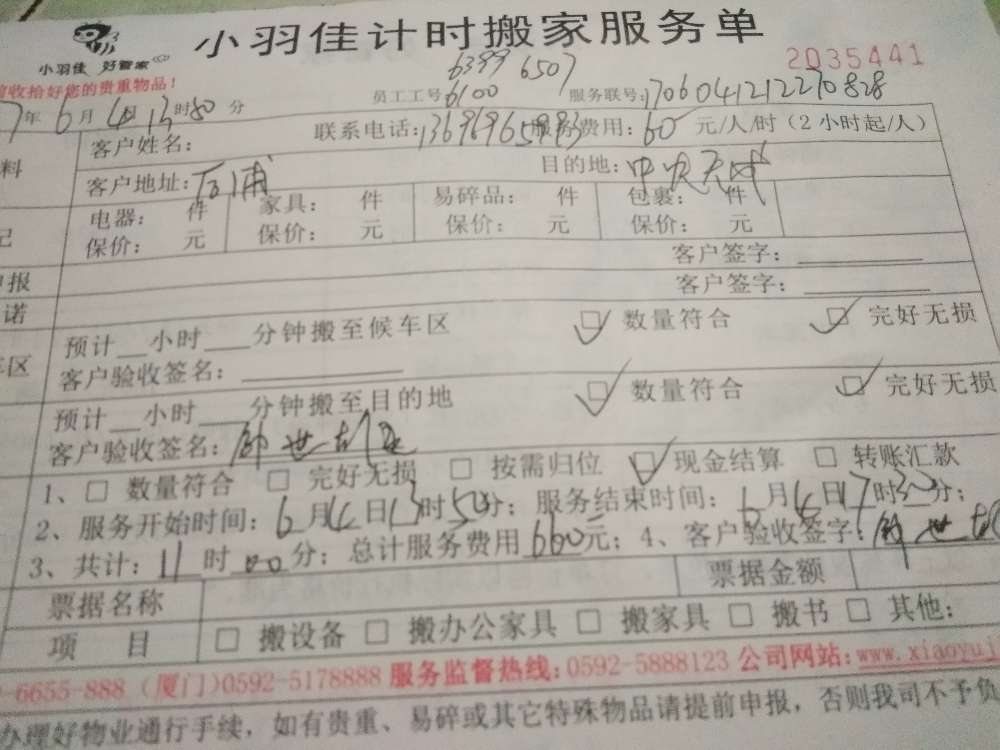 小羽佳计时搬家服务单
小羽佳 好管家
2035441
收拾好您的贵重物品！
6399 6507
员工工号 6100 服务联号：1706041212270828
7年6月4日13时50分
联系电话：13696965993 服务费用：60元/人/时（2小时起/人）
料 客户姓名：
客户地址：后浦 目的地：中央天成
电器： 件 家具： 件 易碎品： 件 包裹： 件
记 保价： 元 保价： 元 保价： 元 保价： 元
客户签字：
报 客户签字：
诺
预计__小时__分钟搬至候车区 数量符合 完好无损
车区 客户验收签名：
预计__小时__分钟搬至目的地 数量符合 完好无损
客户验收签名：
1、□ 数量符合 □ 完好无损 □ 按需归位 ☑ 现金结算 □ 转账汇款
2、服务开始时间：6月4日13时50分；服务结束时间：6月4日17时30分；
3、共计：11时00分；总计服务费用660元；4、客户验收签字：
票据名称 票据金额
项 目 □ 搬设备 □ 搬办公家具 □ 搬家具 □ 搬书 □ 其他：
-6655-888（厦门）0592-5178888 服务监督热线：0592-5888123 公司网站：www.xiaoyuj
办理好物业通行手续，如有贵重、易碎或其它特殊物品请提前申报，否则我司不予负